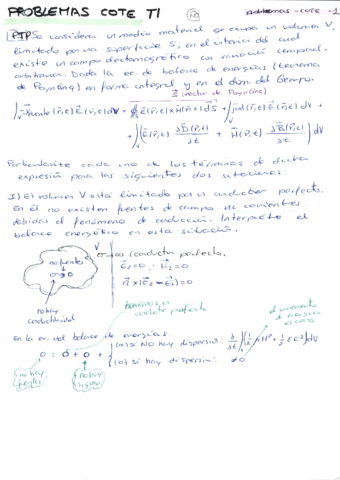 PROBLEMAS COTE T1
Problemas - COTE - 1
PTP Se considera un medio material que ocupa un volumen V,
limitado por una superficie S, en el interior del cual
existe un campo electromagnético con variación temporal
arbitraria. Dada la ec. de balance de energías (teorema
de Poynting) en forma integral y en el dom. del tiempo.
(vector de Poynting)
Particularice cada uno de los términos de dicha
expresión para las siguientes dos situaciones.
I) El volumen V está limitado por un conductor perfecto.
En él no existen fuentes de campo ni corrientes
debidas al fenómeno de conducción. Interprete el
balance energético en esta situación.
V
no fuentes
σ→0
σ→∞ conductor perfecto
E₂=0 ; H₂=0
n × (E₂ − E₁) = 0
no hay
conductividad
tenemos un
conductor perfecto
En la ec. del balance de energías:
0 = 0 + 0 +
(no) si NO hay dispersión:
(0) si hay dispersión: ≠0
no hay
fuentes
no hay
sigma